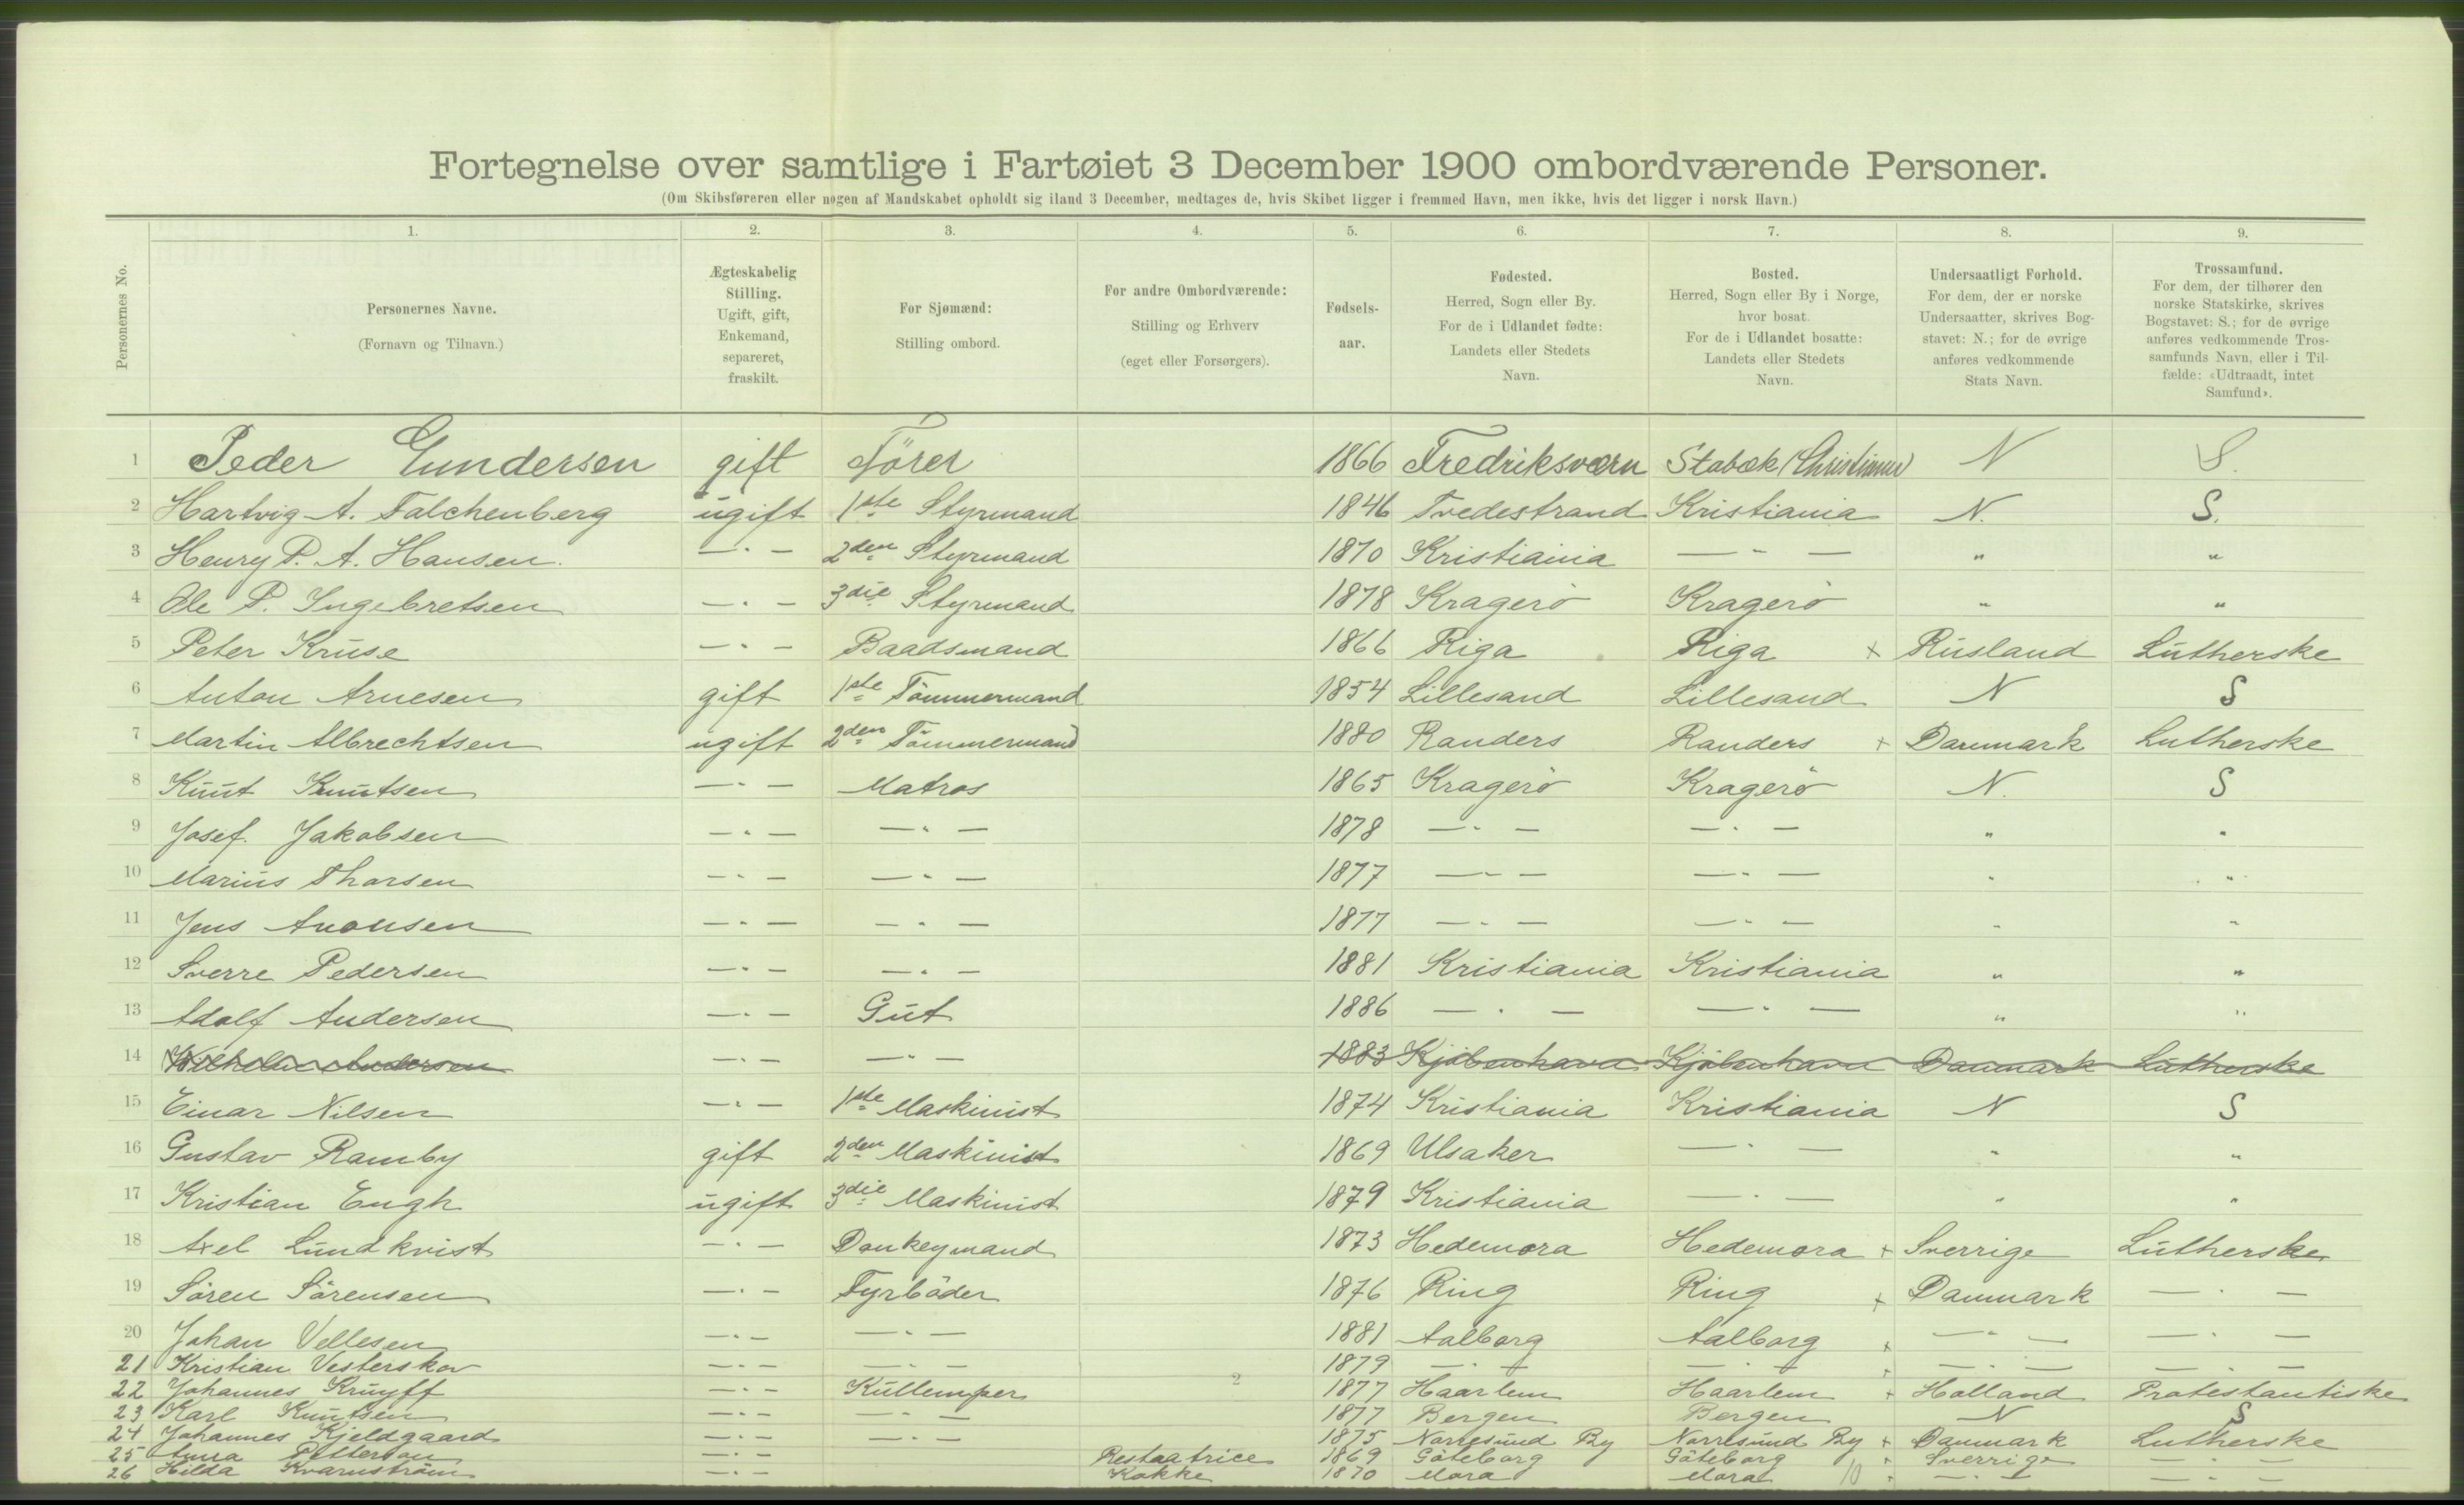 Fortegnelse over samtlige i Fartøiet 3 December 1900 ombordværende Personer.
(Om Skibsføreren eller nogen af Mandskabet opholdt sig iland 3 December, medtages de, hvis Skibet ligger i fremmed Havn, men ikke, hvis det ligger i norsk Havn.)
Personernes No.
1. Personernes Navne. (Fornavn og Tilnavn.)
2. Ægteskabelig Stilling. Ugift, gift, Enkemand, separeret, fraskilt.
3. For Sjømænd: Stilling ombord.
4. For andre Ombordværende: Stilling og Erhverv (eget eller Forsørgers).
5. Fødsels-aar.
6. Fødested. Herred, Sogn eller By. For de i Udlandet fødte: Landets eller Stedets Navn.
7. Bosted. Herred, Sogn eller By i Norge, hvor bosat. For de i Udlandet bosatte: Landets eller Stedets Navn.
8. Undersaatligt Forhold. For dem, der er norske Undersaatter, skrives Bogstavet: N.; for de øvrige anføres vedkommende Stats Navn.
9. Trossamfund. For dem, der tilhører den norske Statskirke, skrives Bogstavet: S.; for de øvrige anføres vedkommende Trossamfunds Navn, eller i Tilfælde: «Udtraadt, intet Samfund».
1 Peder Gundersen gift Förer 1866 Fredriksværn Stabæk (Christiania) N S.
2 Hartvig A. Falchenberg ugift 1ste Styrmand 1846 Tvedestrand Kristiania N. S.
3 Henry P. A. Hansen. — " — 2den Styrmand 1870 Kristiania — " — " "
4 Ole P. Ingebretsen — " — 3die Styrmand 1878 Kragerö Kragerö " "
5 Peter Kruse — " — Baadsmand 1866 Riga Riga x Rusland Lutherske
6 Anton Arnesen gift 1ste Tömmermand 1854 Lillesand Lillesand N S
7 Martin Albrechtsen ugift 2den Tömmermand 1880 Randers Randers x Danmark Lutherske
8 Knut Knutsen — " — Matros 1865 Kragerö Kragerö N. S
9 Josef. Jakobsen — " — — " — 1878 — " — — " — " "
10 Marius Thorsen — " — — " — 1877 — " — — " — " "
11 Jens Aronsen — " — — " — 1877 — " — — " — " "
12 Sverre Pedersen — " — — " — 1881 Kristiania Kristiania " "
13 Adolf Andersen — " — Gut 1886 — " — — " — " "
14 Wilhelm Andersen — " — — " — 1883 Kjöbenhavn Kjöbenhavn Danmark Lutherske
15 Einar Nilsen — " — 1ste Maskinist 1874 Kristiania Kristiania N S
16 Gustav Ramby gift 2den Maskinist 1869 Ulsaker — " — " "
17 Kristian Engh ugift 3die Maskinist 1879 Kristiania — " — " "
18 Axel Lundkvist — " — Donkeymand 1873 Hedemora Hedemora x Sverrige Lutherske
19 Sören Sörensen — " — Fyrböder 1876 Ring Ring x Danmark — " —
20 Johan Vellesen — " — — " — 1881 Aalborg Aalborg x — " — — " —
21 Kristian Vesterskov — " — — " — 1879 — " — — " — x — " — — " —
22 Johannes Kruyff — " — Kullemper 2 1877 Haarlem Haarlem x Holland Protestantiske
23 Karl Knutsen — " — — " — 1877 Bergen Bergen N S
24 Johannes Kjeldgaard — " — — " — 1875 Norresund By Norresund By x Danmark Lutherske
25 Anna Petterson — " — Restaatrice 1869 Göteborg Göteborg x Sverrige — " —
26 Hilda Kvarnström — " — Kokke 1870 Mora Mora 10 x — " — — " —